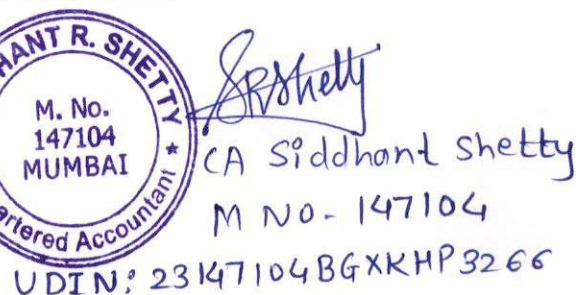 HANT R. SHETTY
M. No.
147104
MUMBAI
artered Accountant
SRShetty
CA Siddhant Shetty
M NO- 147104
UDIN: 23147104BGXKHP3266